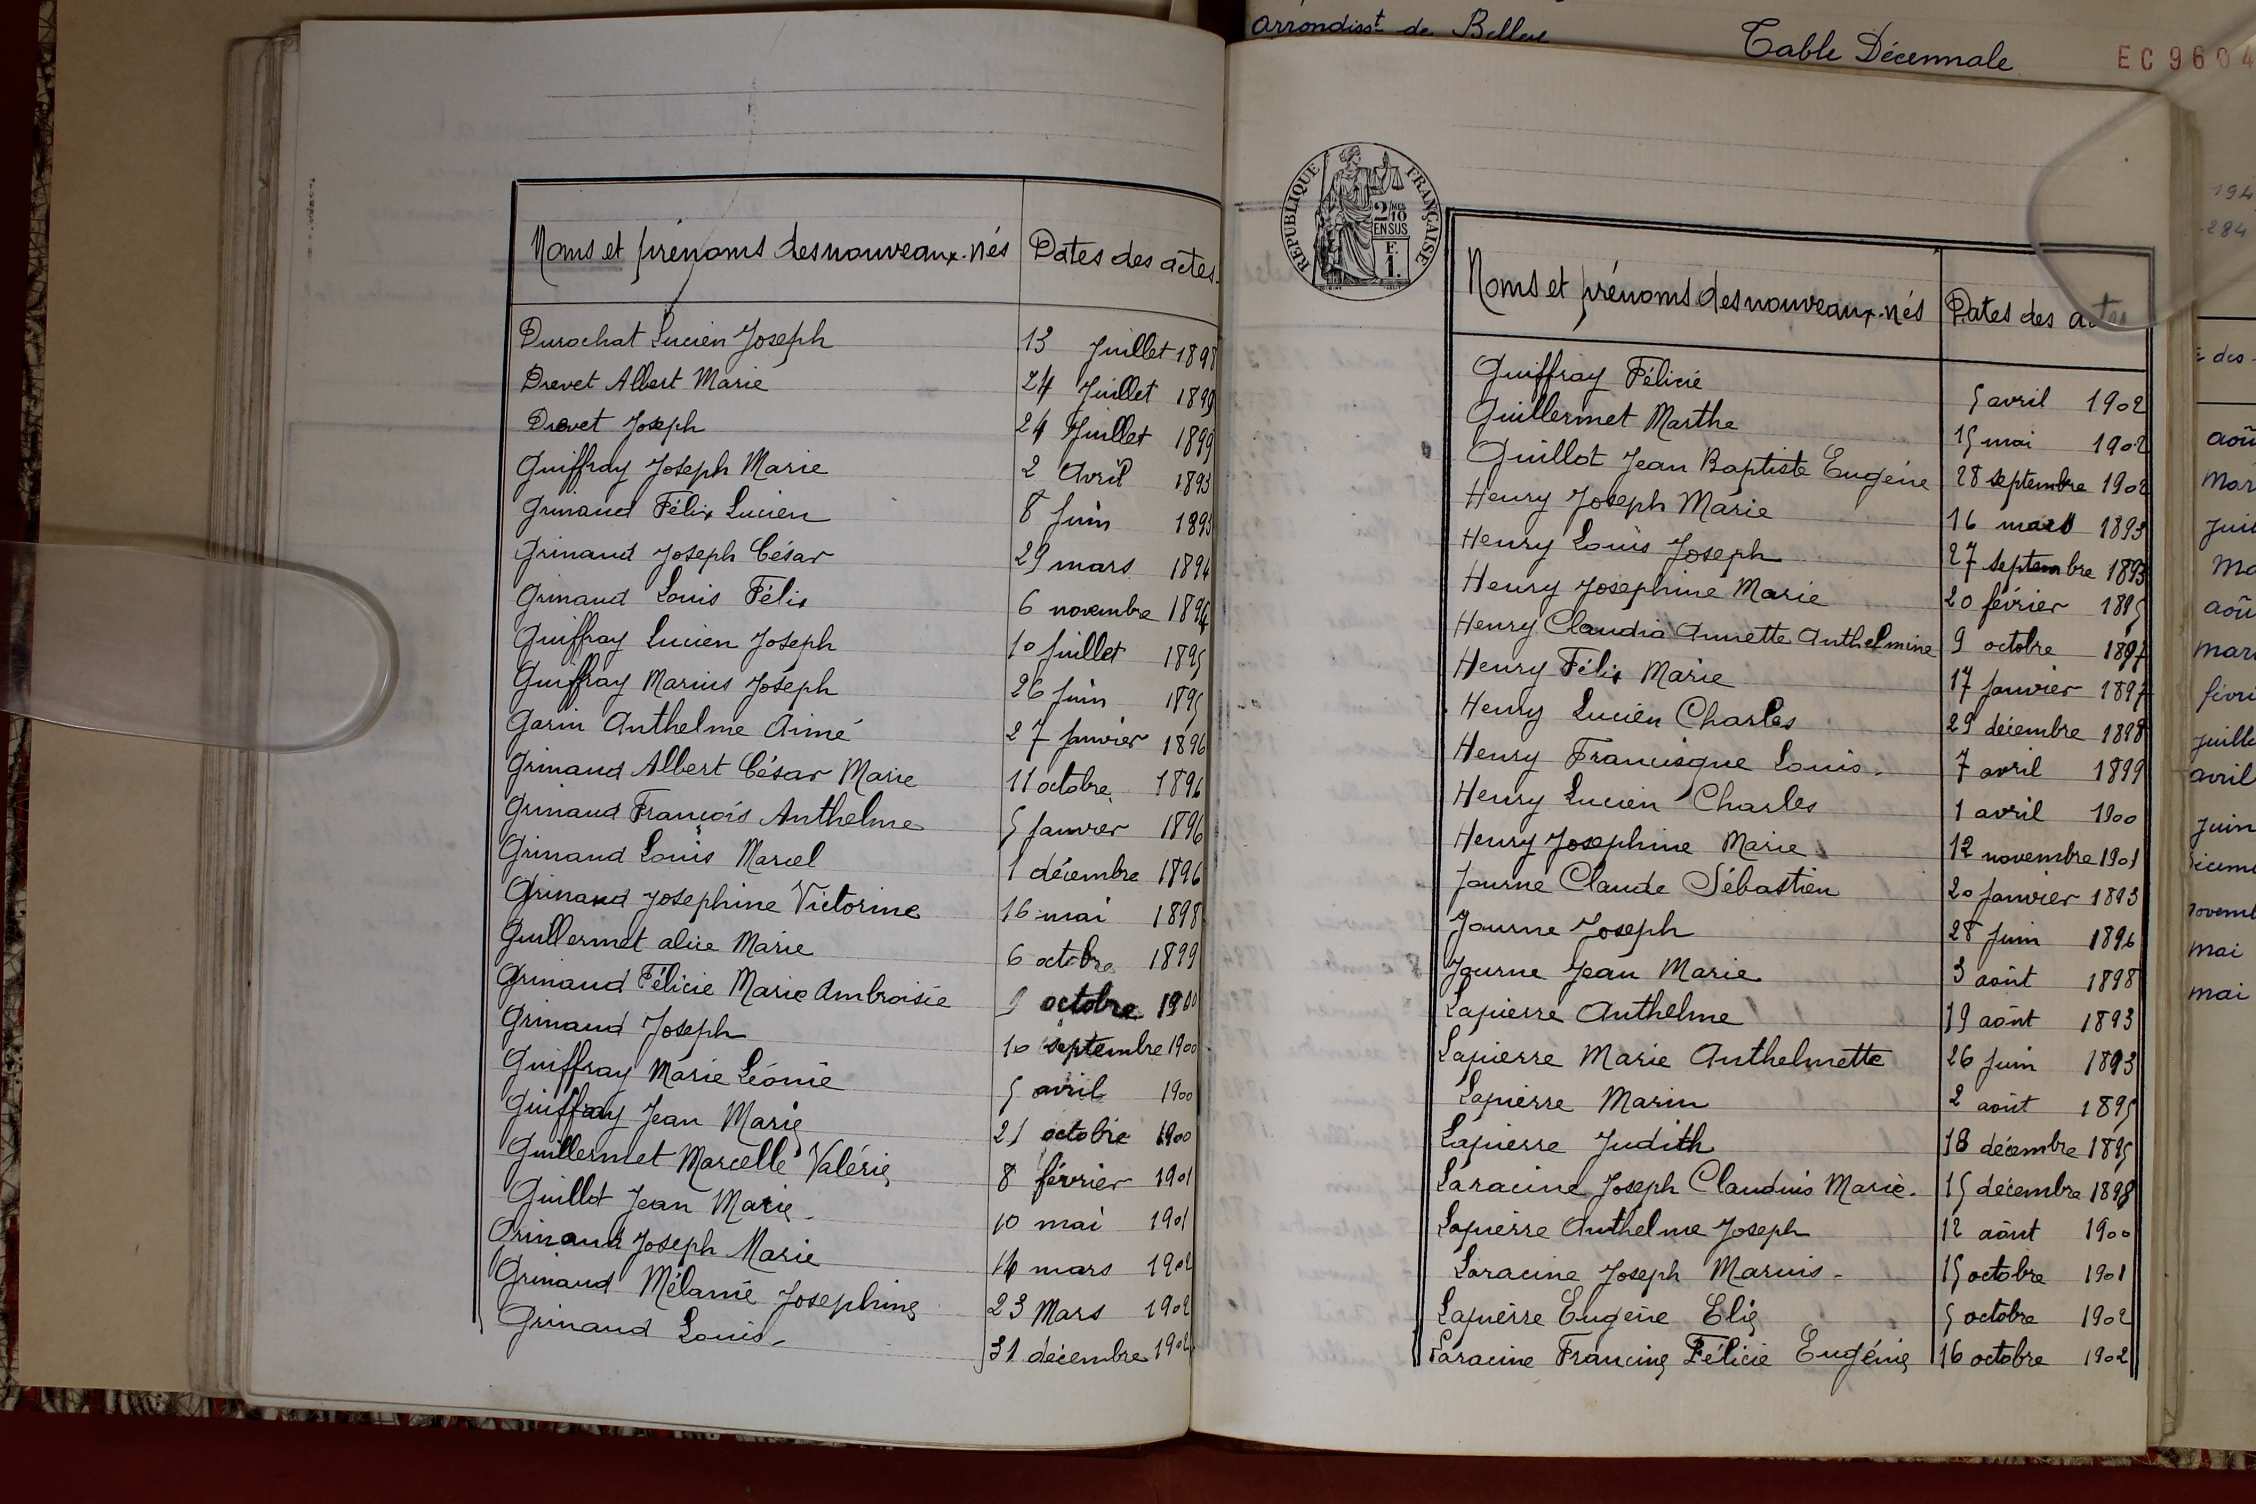 arrondisst de Belley
Table Décennale
EC 9604
Noms et prénoms des nouveaux-nés Dates des actes.
Durochat Lucien Joseph 13 Juillet 1898
Drevet Albert Marie 24 Juillet 1899
Drevet Joseph 24 Juillet 1899
Guiffray Joseph Marie 2 Avril 1893
Grinand Félix Lucien 8 Juin 1893
Grinand Joseph César 29 mars 1894
Grinand Louis Félix 6 novembre 1894
Guiffray Lucien Joseph 10 Juillet 1895
Guiffray Marius Joseph 26 Juin 1895
Garin Anthelme Aimé 27 Janvier 1896
Grinand Albert César Marie 11 octobre 1896
Grinand François Anthelme 5 Janvier 1896
Grinand Louis Marcel 1 décembre 1896
Grinand Josephine Victorine 16 mai 1898
Guillermet alice Marie 6 octobre 1899
Grinand Félicie Marie Ambroisie 9 octobre 1900
Grinand Joseph 10 septembre 1900
Guiffray Marie Léonie 5 avril 1900
Guiffray Jean Marie 21 octobre 1900
Guillermet Marcelle Valérie 8 février 1901
Guillot Jean Marie 10 mai 1901
Grinand Joseph Marie 14 mars 1902
Grinand Mélanie Josephine 23 Mars 1902
Grinand Louis 31 décembre 1902
REPUBLIQUE FRANÇAISE
2/10
EN SUS
F.
1.
Noms et prénoms des nouveaux-nés Dates des actes
Guiffray Félicie 5 avril 1902
Guillermet Marthe 15 mai 1902
Guillot Jean Baptiste Eugène 28 septembre 1902
Henry Joseph Marie 16 mars 1893
Henry Louis Joseph 27 septembre 1893
Henry Josephine Marie 20 février 1895
Henry Claudia Annette Anthelmine 9 octobre 1897
Henry Félix Marie 17 Janvier 1897
Henry Lucien Charles 29 décembre 1898
Henry Francisque Louis. 7 avril 1899
Henry Lucien Charles 1 avril 1900
Henry Josephine Marie 12 novembre 1901
Journe Claude Sébastien 20 Janvier 1893
Journe Joseph 28 Juin 1896
Journe Jean Marie 3 août 1898
Lapierre Anthelme 19 août 1893
Lapierre Marie Anthelmette 26 Juin 1893
Lapierre Marin 2 août 1895
Lapierre Judith 18 décembre 1895
Laracine Joseph Claudius Marie. 15 décembre 1898
Lapierre Anthelme Joseph 12 août 1900
Laracine Joseph Marius 15 octobre 1901
Lapierre Eugène Elie 5 octobre 1902
Laracine Francine Félicie Eugénie 16 octobre 1902